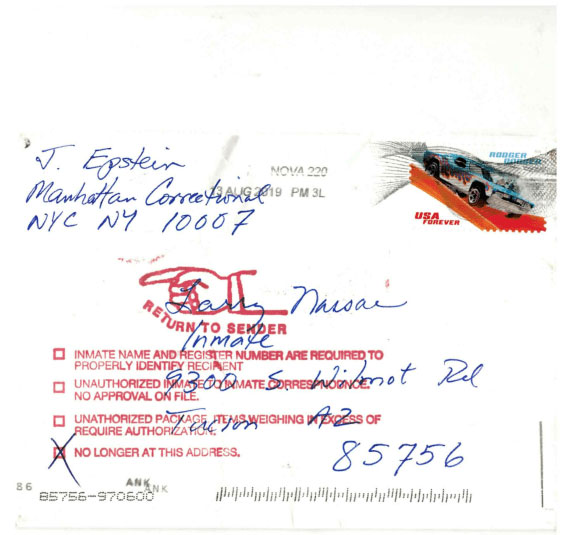 J. Epstein
Manhattan Correctional
NYC NY 10007
NOVA 220
13 AUG 2019 PM 3L
RODGER DODGER
USA
FOREVER
Larry Nassar
RETURN TO SENDER
Inmate
INMATE NAME AND REGISTER NUMBER ARE REQUIRED TO
PROPERLY IDENTIFY RECIPIENT
UNAUTHORIZED INMATE TO INMATE CORRESPONDENCE.
NO APPROVAL ON FILE.
9300 S. Wilmot Rd
UNATHORIZED PACKAGE. ITEMS WEIGHING IN EXCESS OF
REQUIRE AUTHORIZATION.
Tucson AZ
X NO LONGER AT THIS ADDRESS.
85756
86
ANK
ANK
85756-970600